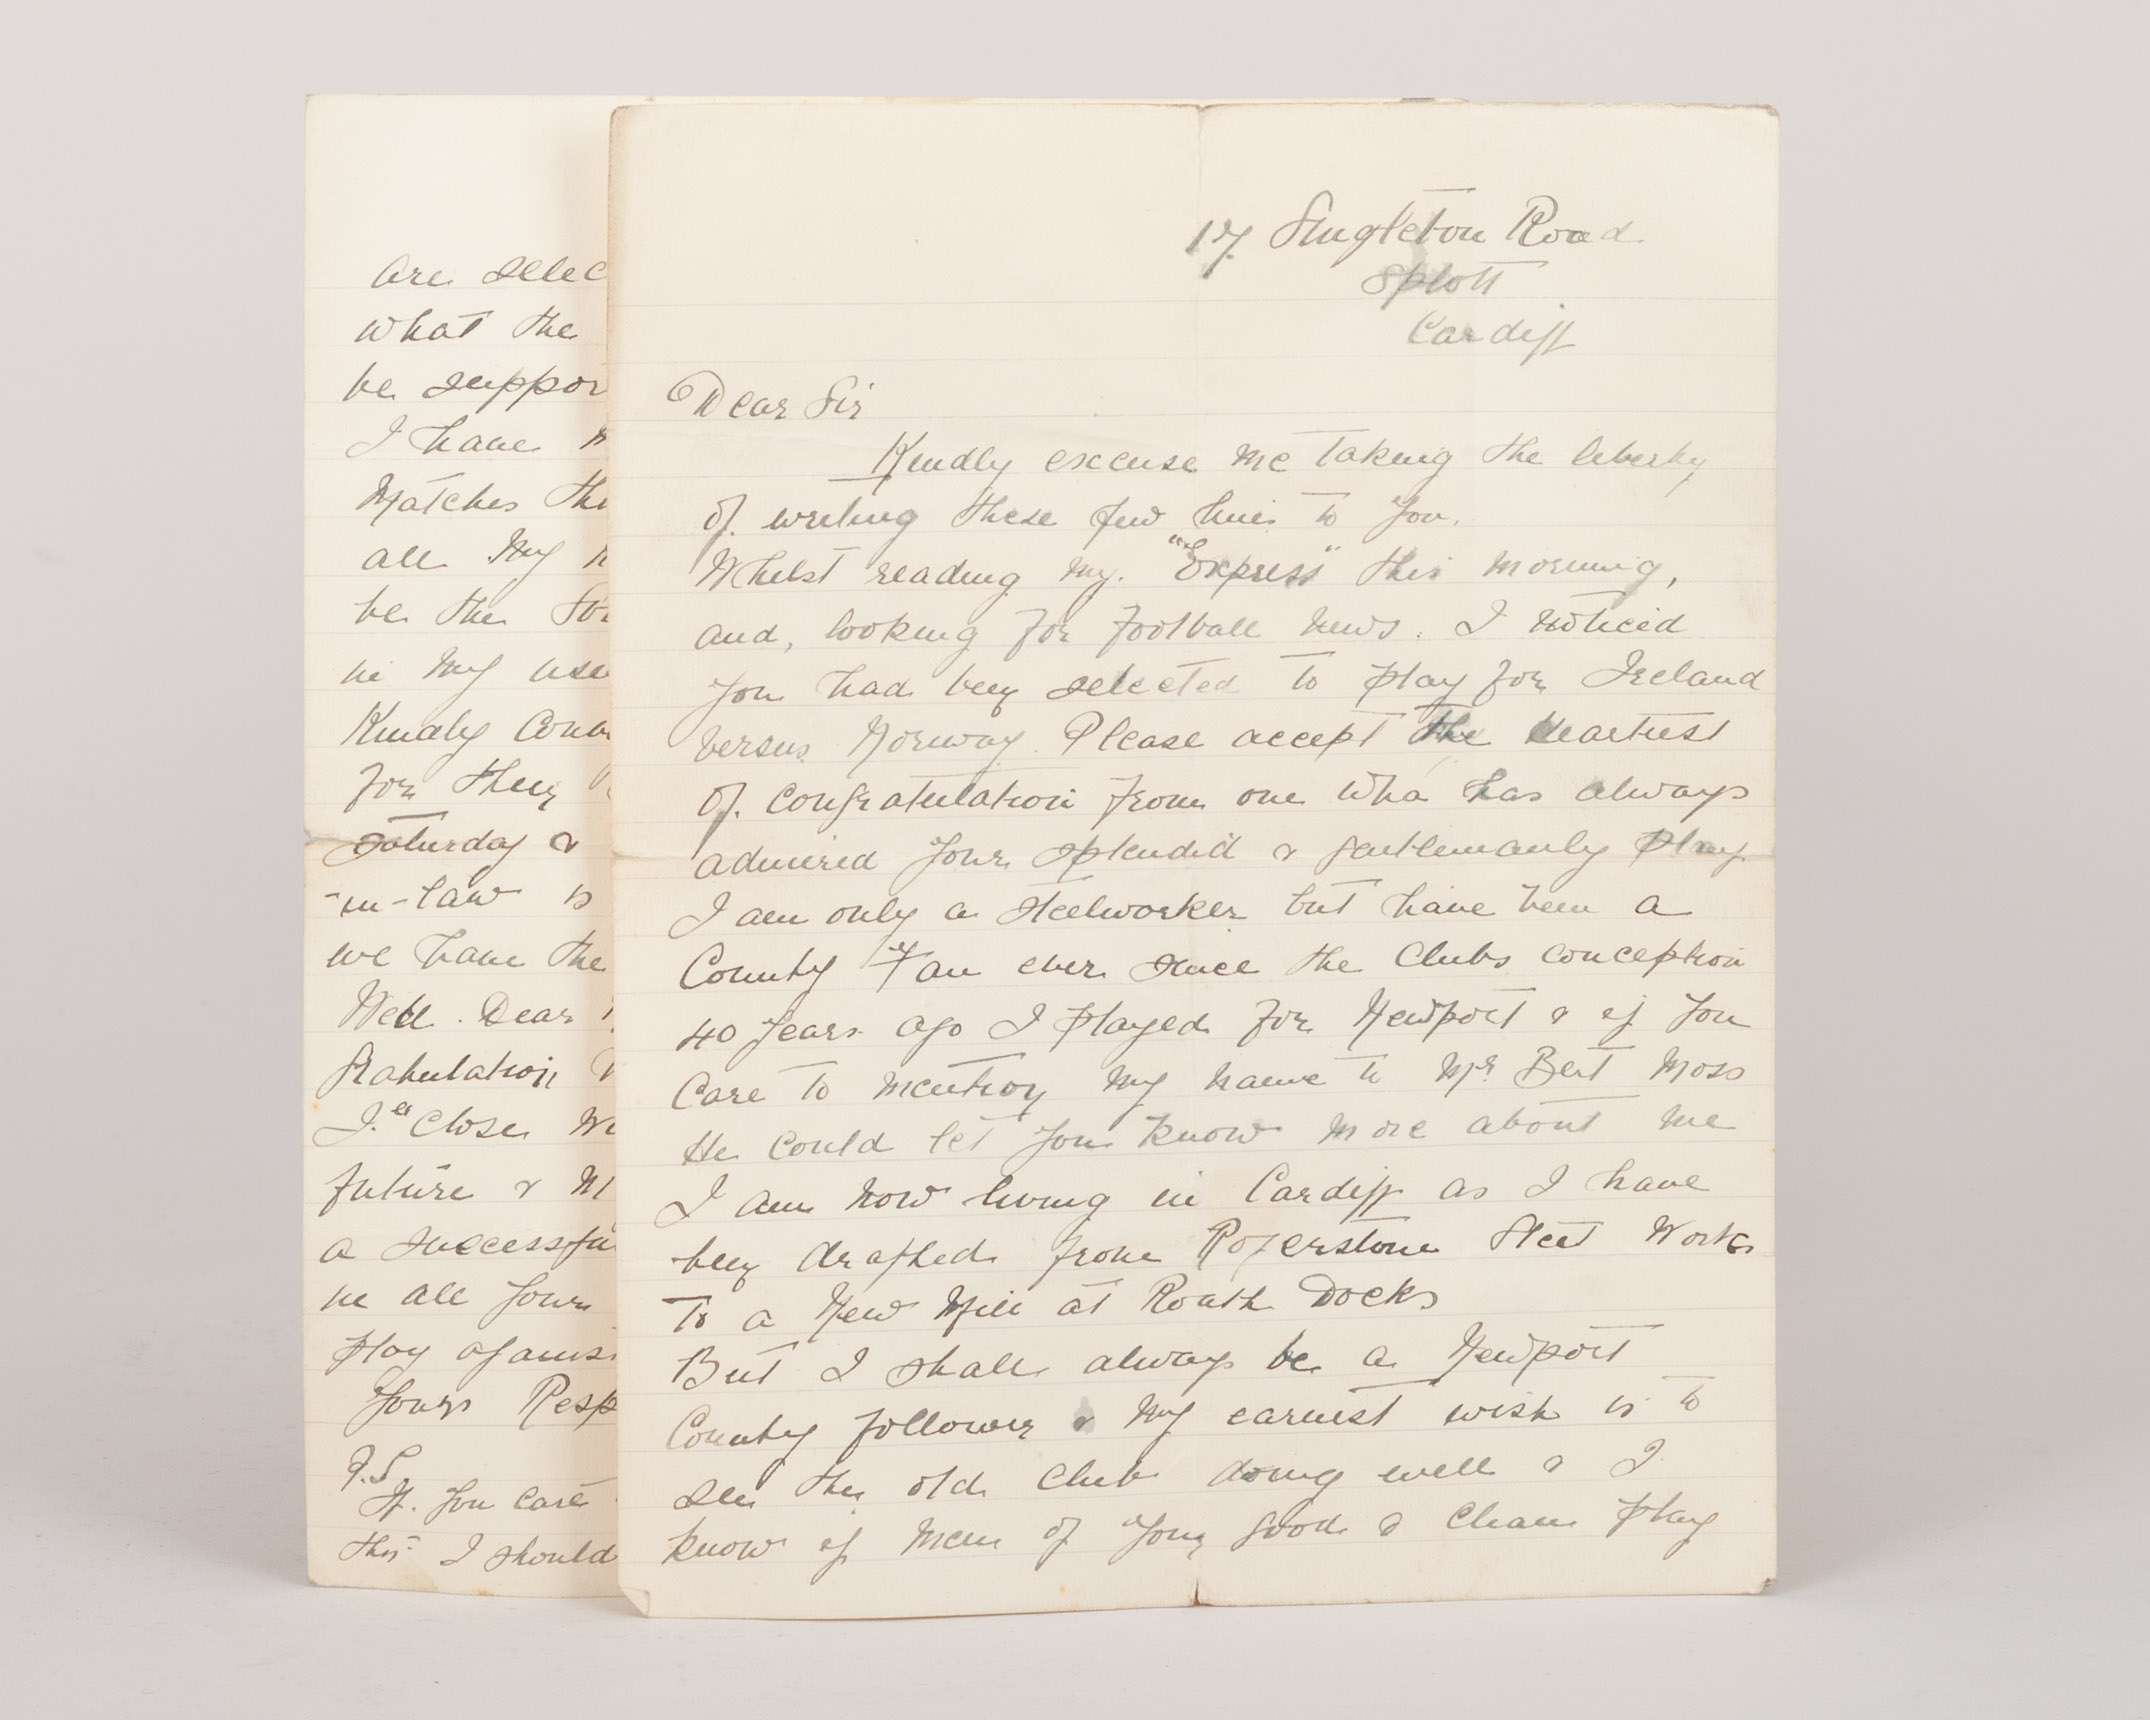 17 Singleton Road
Splott
Cardiff
Dear Sir
Kindly excuse me taking the liberty
of writing these few lines to you.
Whilst reading my "Express" this morning,
and, looking for football news. I noticed
you had been selected to play for Ireland
versus Norway. Please accept the heartiest
of congratulation from one who has always
admired your splendid & gentlemanly play
I am only a steelworker but have been a
County Fan ever since the Clubs conception
40 years ago I played for Newport & if you
Care to mention my name to Mr. Bert Moss
He could let you know more about me
I am now living in Cardiff as I have
been drafted from Rogerstone Steel Works
To a New Mill at Roath Docks
But I shall always be a Newport
County follower & my earnest wish is to
see the old Club doing well & I
know if men of your good & clean play
are selec
what the
be suppor
I have
Matches
all my
be the
in my use
Kindly
for their
Saturday &
-in-law is
we have the
Well. Dear
gratulation
I "Close
future &
a successfu
in all your
play agains
Yours Resp
P.S.
If you care
this I should